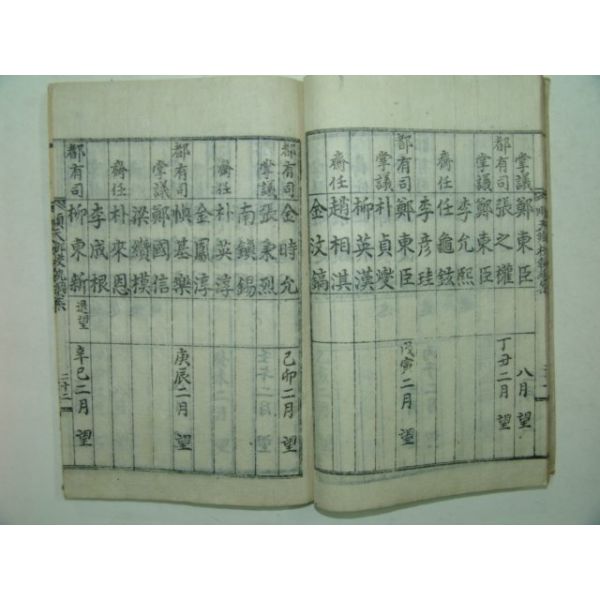 掌議 鄭東臣 八月 望
都有司 張之權 丁丑二月 望
掌議 鄭東臣
李允熙
齋任 任龜鉉
李彦珪
都有司 鄭東臣 戊寅二月 望
掌議 朴貞燮
柳英漢
齋任 趙相淇
金汶鎬
都有司 金時允 己卯二月 望
掌議 張秉烈
南鎭錫
齋任 朴英淳
金鳳淳
都有司 愼基樂 庚辰二月 望
掌議 鄭國信
梁纘模
齋任 朴來恩
李成根
都有司 柳東新 退望 辛巳二月 望
順天鄕校 二十二